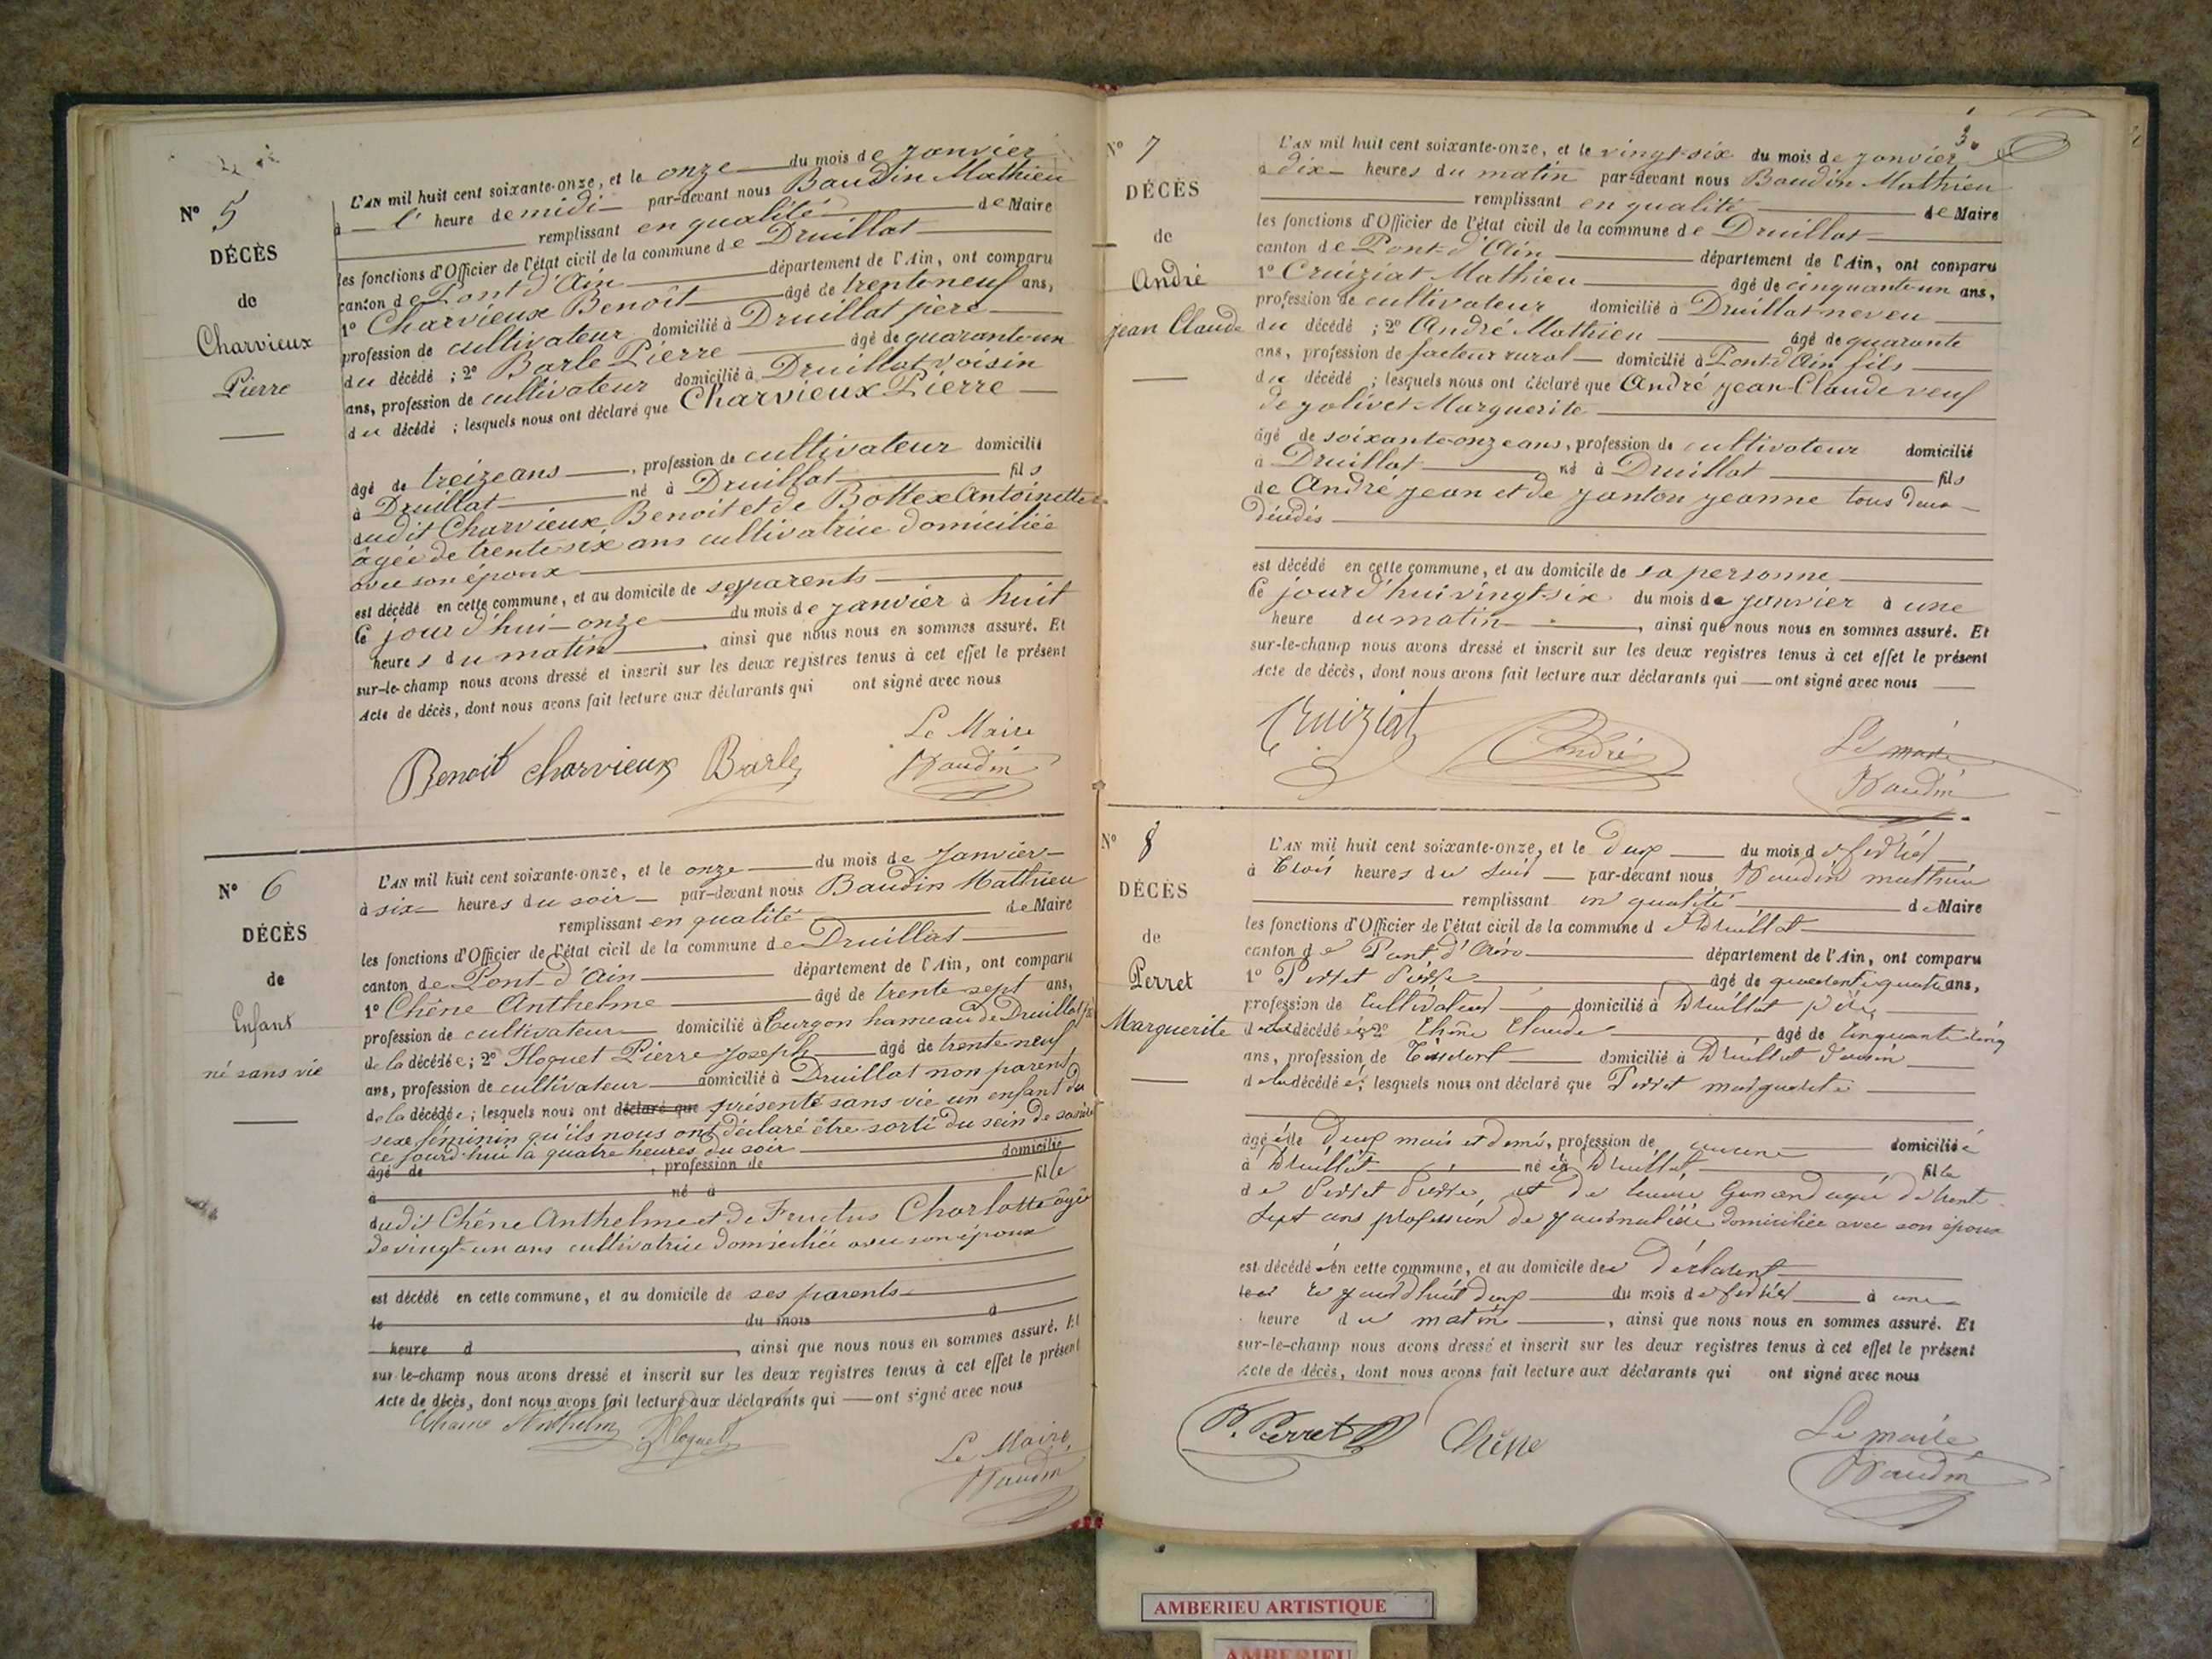 Nº 5
DÉCÈS
de
Charvieux
Pierre
L'AN mil huit cent soixante-onze, et le onze du mois de janvier
à l' heure de midi par-devant nous Baudin Mathieu
remplissant en qualité de Maire
les fonctions d'Officier de l'état civil de la commune de Druillat
canton de Pont d'Ain département de l'Ain, ont comparu
1º Charvieux Benoît âgé de trente neuf ans,
profession de cultivateur domicilié à Druillat père
du décédé ; 2º Barle Pierre âgé de quarante un
ans, profession de cultivateur domicilié à Druillat voisin
du décédé ; lesquels nous ont déclaré que Charvieux Pierre
âgé de treize ans, profession de cultivateur domicilié
à Druillat né à Druillat fils
dudit Charvieux Benoit et de Bottex Antoinette
âgée de trente six ans cultivatrice domiciliée
avec son époux
est décédé en cette commune, et au domicile de ses parents
Ce jourd'hui onze du mois de janvier à huit
heures du matin, ainsi que nous nous en sommes assuré. Et
sur-le-champ nous avons dressé et inscrit sur les deux registres tenus à cet effet le présent
Acte de décès, dont nous avons fait lecture aux déclarants qui ont signé avec nous
Le Maire
Benoit charvieux Barle Baudin
Nº 6
DÉCÈS
de
Enfant
né sans vie
L'AN mil huit cent soixante-onze, et le onze du mois de Janvier
à six heures du soir par-devant nous Baudin Mathieu
remplissant en qualité de Maire
les fonctions d'Officier de l'état civil de la commune de Druillat
canton de Pont-d'Ain département de l'Ain, ont comparu
1º Chêne Anthelme âgé de trente sept ans,
profession de cultivateur domicilié à Turgon hameau de Druillat
de la décédée ; 2º Floquet Pierre Joseph âgé de trente neuf
ans, profession de cultivateur domicilié à Druillat non parent
de la décédée ; lesquels nous ont déclaré que présenté sans vie un enfant du
sexe féminin qu'ils nous ont déclaré être sorti du sein de sa mère
ce jourd'hui à quatre heures du soir domicilié
âgé de , profession de
à né à fille
dudit Chêne Anthelme et de Fructus Charlotte âgée
de vingt-un ans cultivatrice domiciliée avec son époux
est décédé en cette commune, et au domicile de ses parents
le du mois à
heure d , ainsi que nous nous en sommes assuré. Et
sur-le-champ nous avons dressé et inscrit sur les deux registres tenus à cet effet le présent
Acte de décès, dont nous avons fait lecture aux déclarants qui ont signé avec nous
Anthelm Floquet
Le Maire
Baudin
3
Nº 7
DÉCÈS
de
André
jean Claude
L'AN mil huit cent soixante-onze, et le vingt-six du mois de janvier
à dix heures du matin par-devant nous Baudin Mathieu
remplissant en qualité de Maire
les fonctions d'Officier de l'état civil de la commune de Druillat
canton de Pont-d'Ain département de l'Ain, ont comparu
1º Cruiziat Mathieu âgé de cinquante un ans,
profession de cultivateur domicilié à Druillat neveu
du décédé ; 2º André Mathieu âgé de quarante
ans, profession de facteur rural domicilié à Pont d'Ain fils
du décédé ; lesquels nous ont déclaré que André jean-Claude veuf
de jolivet Marguerite
âgé de soixante-onze ans, profession de cultivateur domicilié
à Druillat né à Druillat fils
de André jean et de janton jeanne tous deux
décédés
est décédé en cette commune, et au domicile de sa personne
Ce jourd'hui vingt-six du mois de janvier à une
heure du matin, ainsi que nous nous en sommes assuré. Et
sur-le-champ nous avons dressé et inscrit sur les deux registres tenus à cet effet le présent
Acte de décès, dont nous avons fait lecture aux déclarants qui ont signé avec nous
Cruiziat André Le maire
Baudin
Nº 8
DÉCÈS
de
Perret
Marguerite
L'AN mil huit cent soixante-onze, et le deux du mois de fevrier
à trois heures du soir par-devant nous Baudin mathieu
remplissant en qualité de Maire
les fonctions d'Officier de l'état civil de la commune de Druillat
canton de Pont d'Ain département de l'Ain, ont comparu
1º Perret Pierre âgé de quarante quatre ans,
profession de cultivateur domicilié à Druillat père
de la décédée ; 2º Chêne Claude âgé de cinquante cinq
ans, profession de domicilié à Druillat voisin
de la décédée ; lesquels nous ont déclaré que Perret marguerite
âgée de deux mois et demi, profession de aucune domiciliée
à Druillat née à Druillat fille
de Perret Pierre et de agée de trente
sept ans profession de journalière domiciliée avec son époux
est décédée en cette commune, et au domicile des déclarent
ce jourd'hui deux du mois de fevrier à une
heure du matin, ainsi que nous nous en sommes assuré. Et
sur-le-champ nous avons dressé et inscrit sur les deux registres tenus à cet effet le présent
Acte de décès, dont nous avons fait lecture aux déclarants qui ont signé avec nous
P. Perret Chêne Le maire
Baudin
AMBERIEU ARTISTIQUE
AMBERIEU